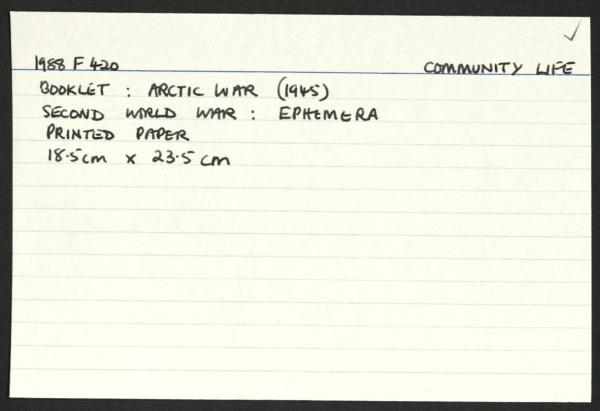 1988 F 420 COMMUNITY LIFE
BOOKLET : ARCTIC WAR (1945)
SECOND WORLD WAR : EPHEMERA
PRINTED PAPER
18.5cm x 23.5 cm